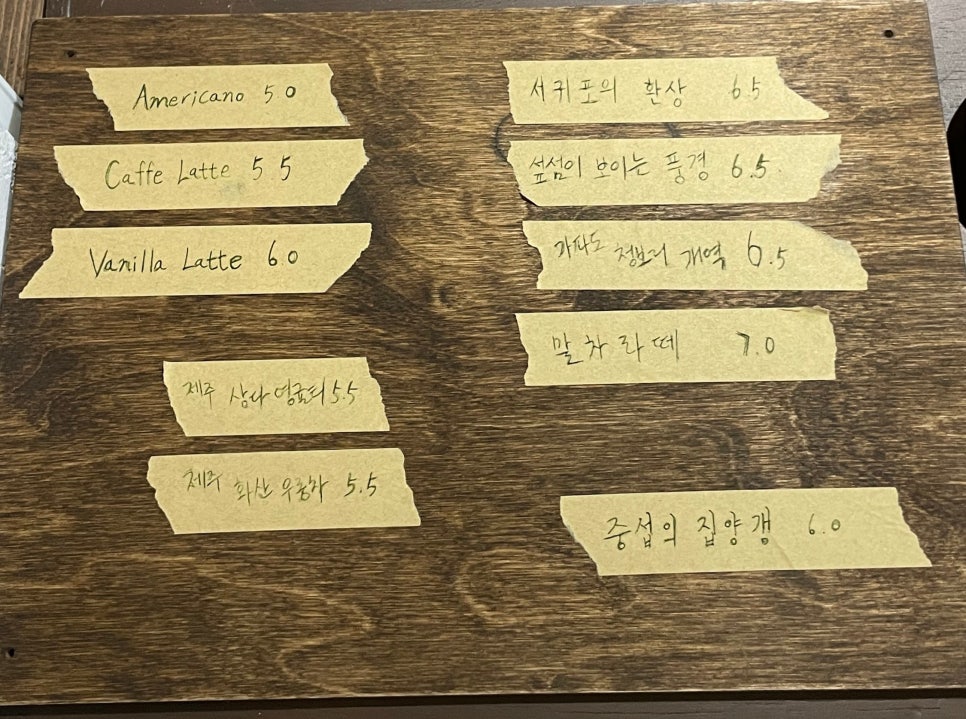 Americano 5.0
Caffe Latte 5.5
Vanilla Latte 6.0
제주 상다영귤티 5.5
제주 화산우롱차 5.5
서귀포의 환상 6.5
섶섬이 보이는 풍경 6.5
가파도 청보리 개역 6.5
말차라떼 7.0
중섭의 집양갱 6.0